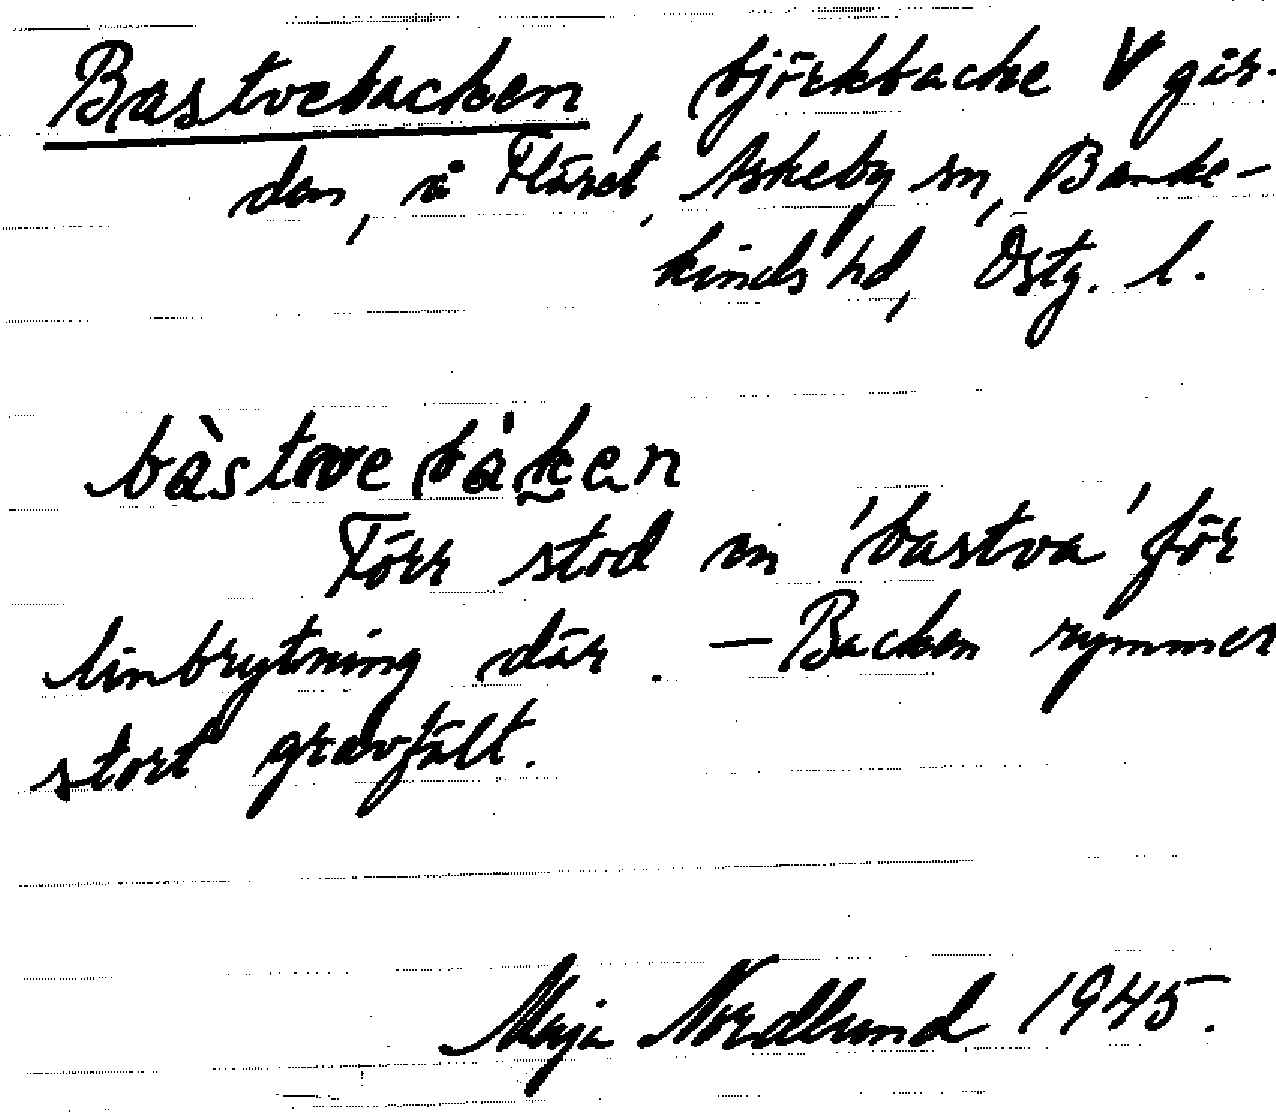 Bastvebacken, björkbacke V går-
den, å Fläret, Askeby sn, Banke-
kinds hd, Östg. l.
bàstvebáken
Förr stod en 'bastva' för
linbrytning där. – Backen rymmer
stort gravfält.
Maja Nordlund 1945.